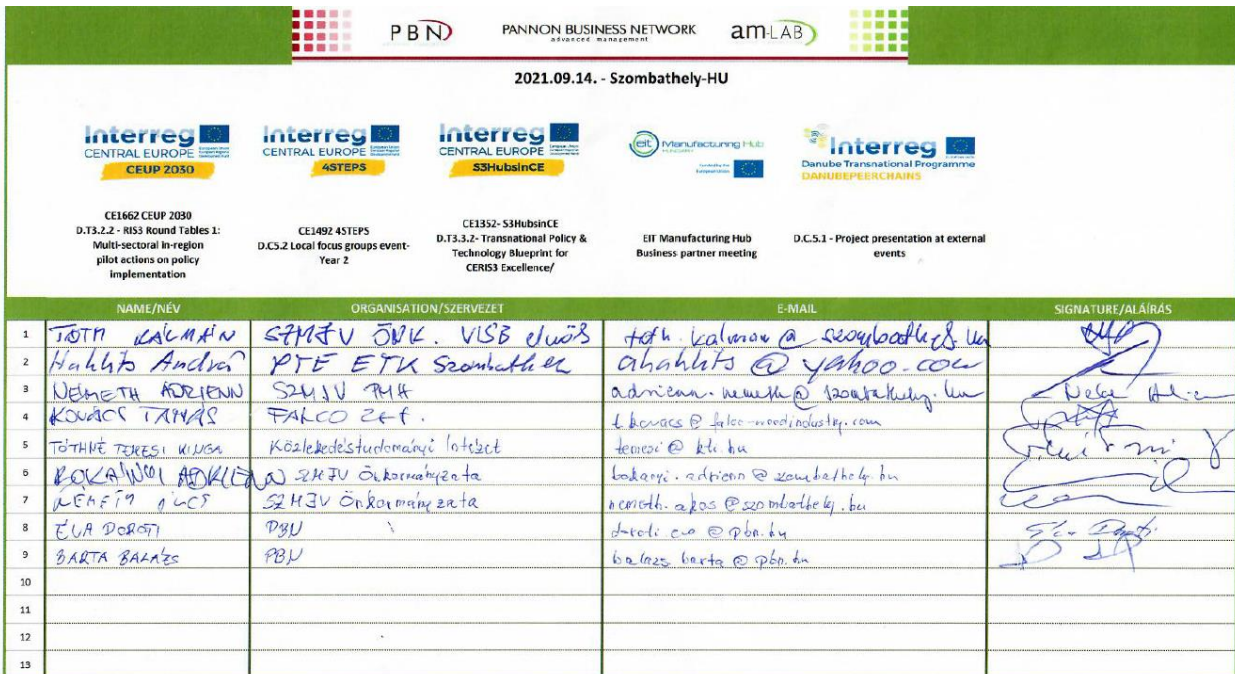 PBN PANNON BUSINESS NETWORK am-LAB
advanced management
2021.09.14. - Szombathely-HU
Interreg
CENTRAL EUROPE
CEUP 2030
Interreg
CENTRAL EUROPE
4STEPS
Interreg
CENTRAL EUROPE
S3HubsinCE
eit Manufacturing Hub
HUNGARY
Interreg
Danube Transnational Programme
DANUBEPEERCHAINS
CE1662 CEUP 2030
D.T3.2.2 - RIS3 Round Tables 1:
Multi-sectoral in-region
pilot actions on policy
implementation
CE1492 4STEPS
D.C5.2 Local focus groups event-
Year 2
CE1352- S3HubsinCE
D.T3.3.2- Transnational Policy &
Technology Blueprint for
CERIS3 Excellence/
EIT Manufacturing Hub
Business partner meeting
D.C.5.1 - Project presentation at external
events
NAME/NÉV ORGANISATION/SZERVEZET E-MAIL SIGNATURE/ALÁÍRÁS
1 TÓTH KÁLMÁN SZMJV ÖNK. VISB elnök toth.kalman@szombathely.hu
2 Hahhits András PTE ETK Szombathely ahahhits@yahoo.com
3 NÉMETH ADRIENN SZMJV PMH adrienn.nemeth@szombathely.hu
4 KOVÁCS TAMÁS FALCO Zrt. t.kovacs@falco-woodindustry.com
5 TÓTHNÉ TEMESI KINGA Közlekedéstudományi Intézet temesi@kti.hu
6 BOKÁNYI ADRIENN SZMJV Önkormányzata bokanyi.adrienn@szombathely.hu
7 NÉMETH ÁKOS SZMJV Önkormányzata nemeth.akos@szombathely.hu
8 ÉVA DOROTI PBN
9 BARTA BALÁZS PBN balazs.barta@pbn.hu
10
11
12
13